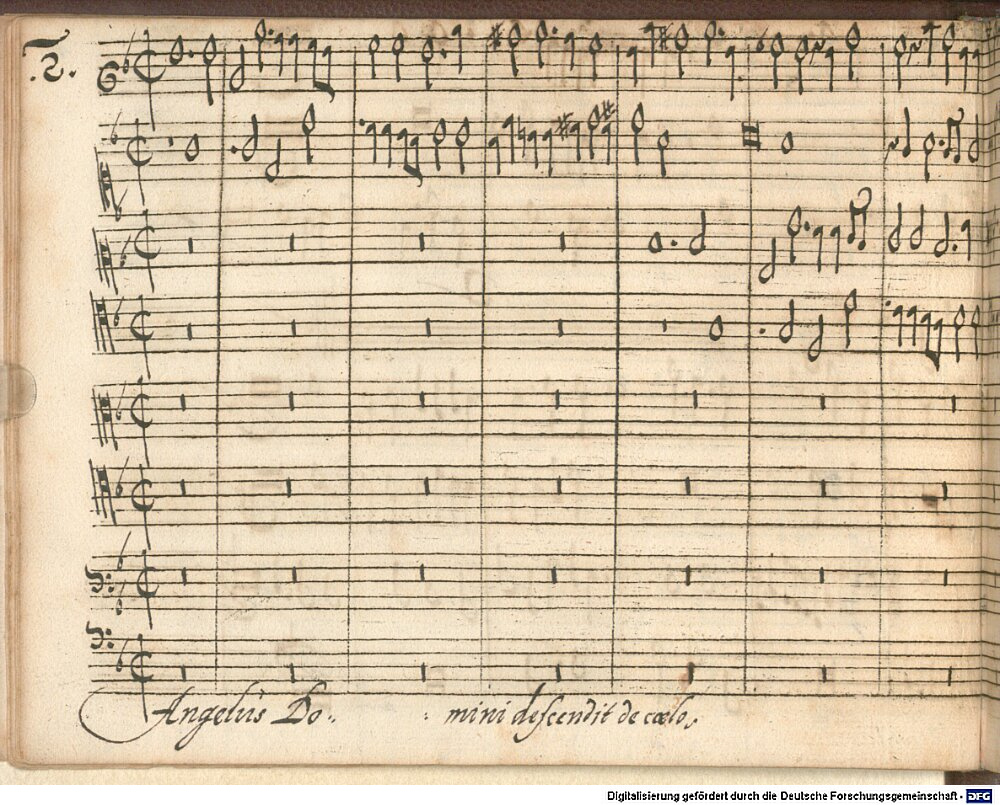 .2.
Angelus Do.. : mini descendit de cœlo,
Digitalisierung gefördert durch die Deutsche Forschungsgemeinschaft - DFG